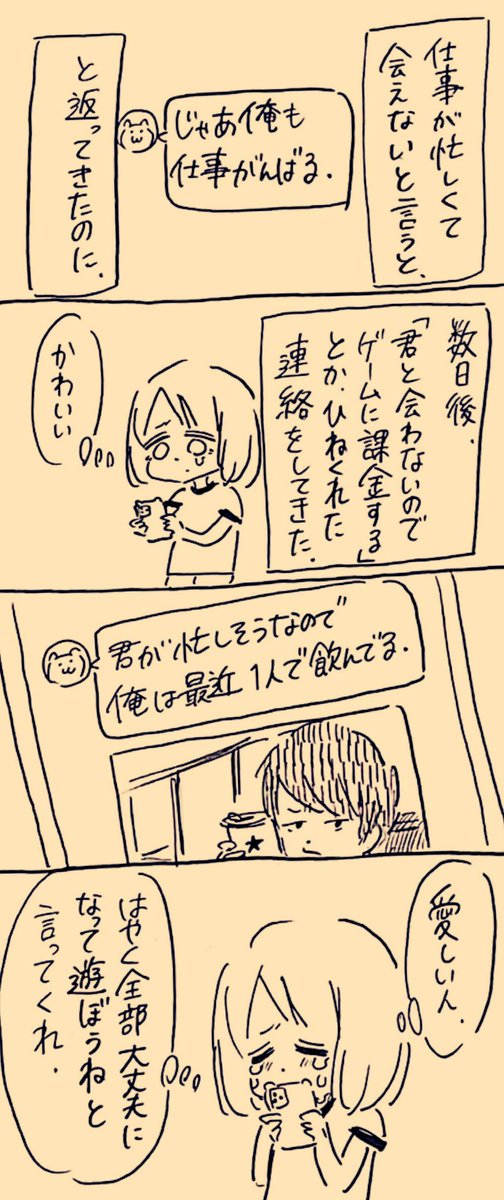 仕事が忙しくて
会えないと言うと、
じゃあ俺も
仕事がんばる.
と返ってきたのに、
数日後.
「君と会わないので
ゲームに課金する」
とか、ひねくれた
連絡をしてきた.
かわいい
君が忙しそうなので
俺は最近1人で飲んでる.
愛しいん.
はやく全部大丈夫に
なって遊ぼうねと
言ってくれ.